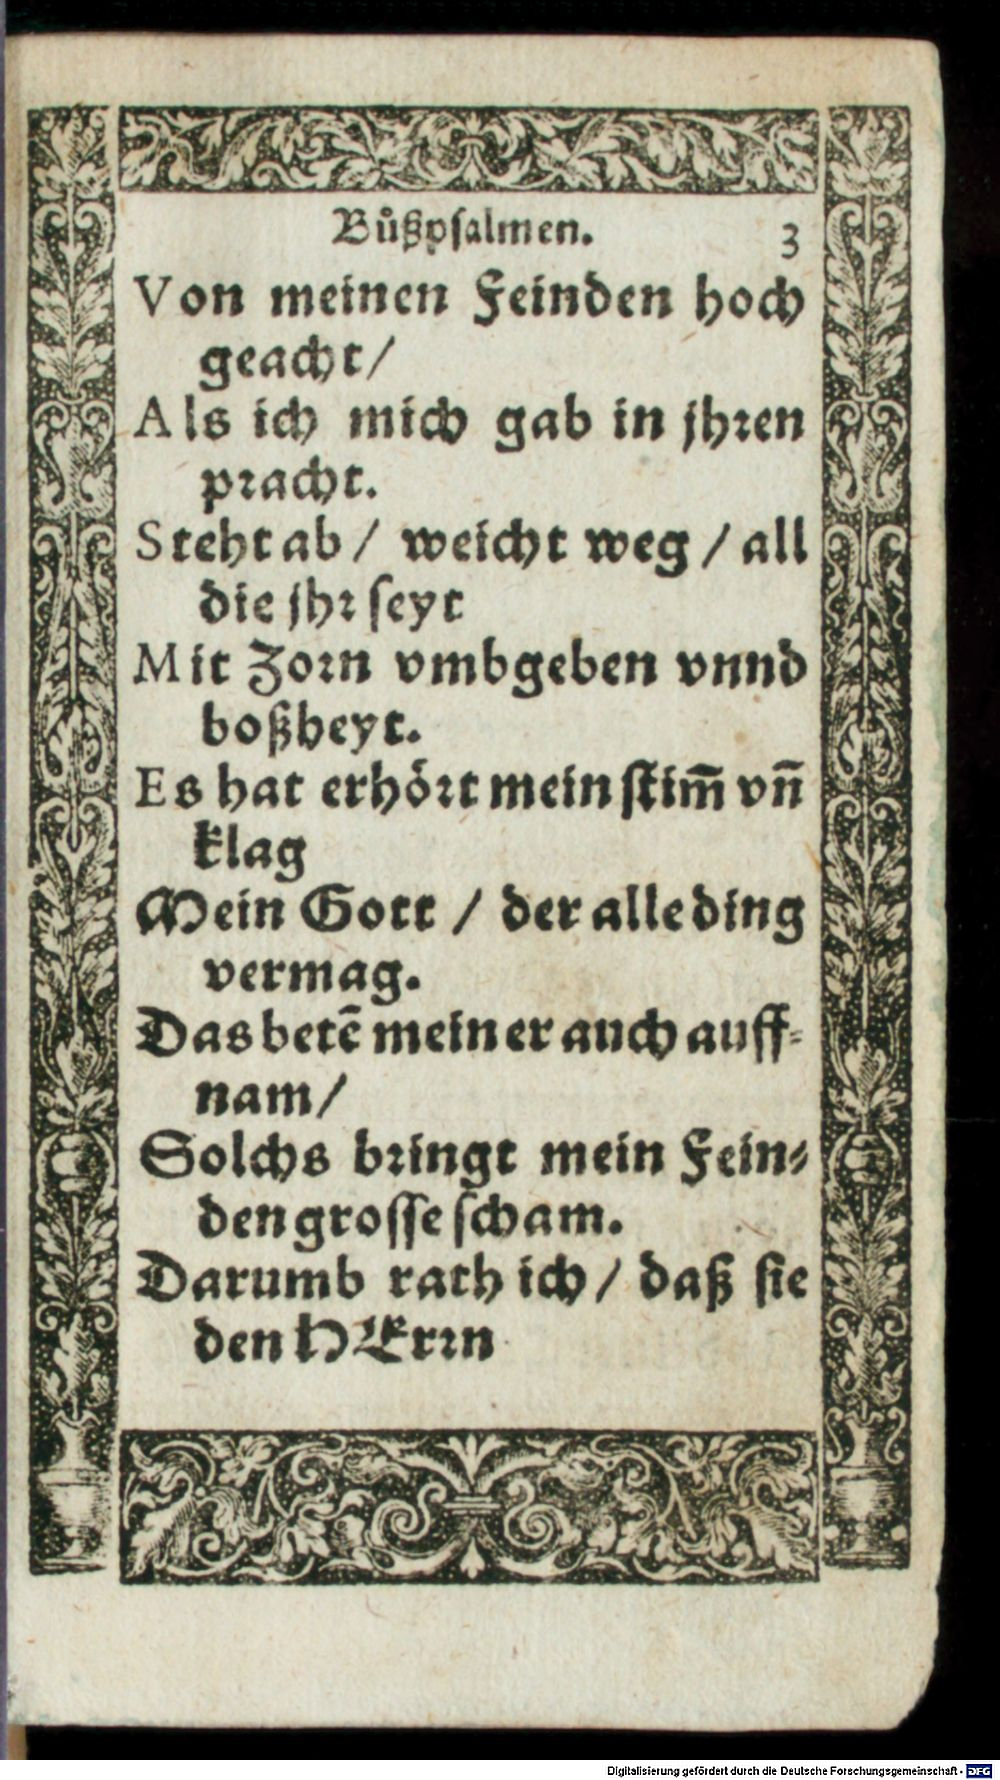 Bůßpſalmen. 3
Von meinen Feinden hoch
geacht/
Als ich mich gab in jhꝛen
pꝛacht.
Steht ab / weicht weg / all
die jhꝛ ſeyt
Mit Zoꝛn vmbgeben vnnd
boßheyt.
Es hat erhöꝛt mein ſtim̃ vn̄
klag
Mein Gott / der alle ding
vermag.
Das betẽ mein er auch auff⸗
nam/
Solchs bꝛingt mein Fein⸗
den groſſe ſcham.
Darumb rath ich / daß ſie
den HErꝛn
Digitalisierung gefördert durch die Deutsche Forschungsgemeinschaft - DFG